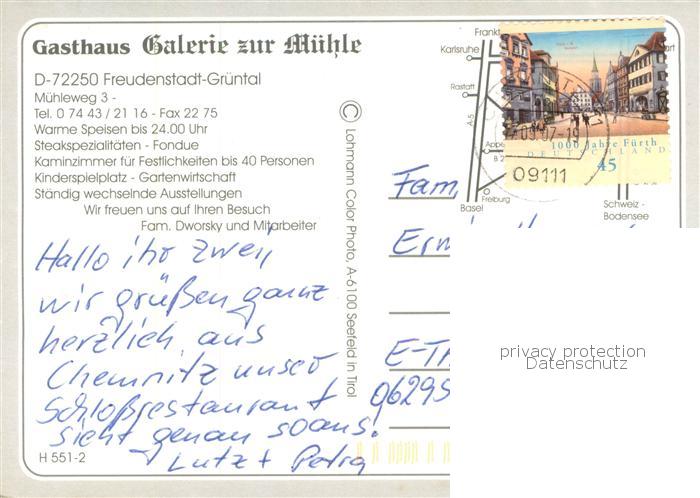 Gasthaus Galerie zur Mühle
D-72250 Freudenstadt-Grüntal
Mühleweg 3 -
Tel. 0 74 43 / 21 16 - Fax 22 75
Warme Speisen bis 24.00 Uhr
Steakspezialitäten - Fondue
Kaminzimmer für Festlichkeiten bis 40 Personen
Kinderspielplatz - Gartenwirtschaft
Ständig wechselnde Ausstellungen
Wir freuen uns auf Ihren Besuch
Fam. Dworsky und Mitarbeiter
Hallo ihr zwei,
wir grüßen ganz
herzlich aus
Chemnitz unser
Schloßrestaurant
sieht genau so aus!
Lutz + Petra
H 551-2
© Lohmann Color Photo, A-6100 Seefeld in Tirol
Frankf
Karlsruhe
Rastatt
A-5
Appe
B 2
Freiburg
Basel
Schweiz -
Bodensee
1000 Jahre Fürth
DEUTSCHLAND
45
09111
Fam.
E-T
06295
privacy protection
Datenschutz